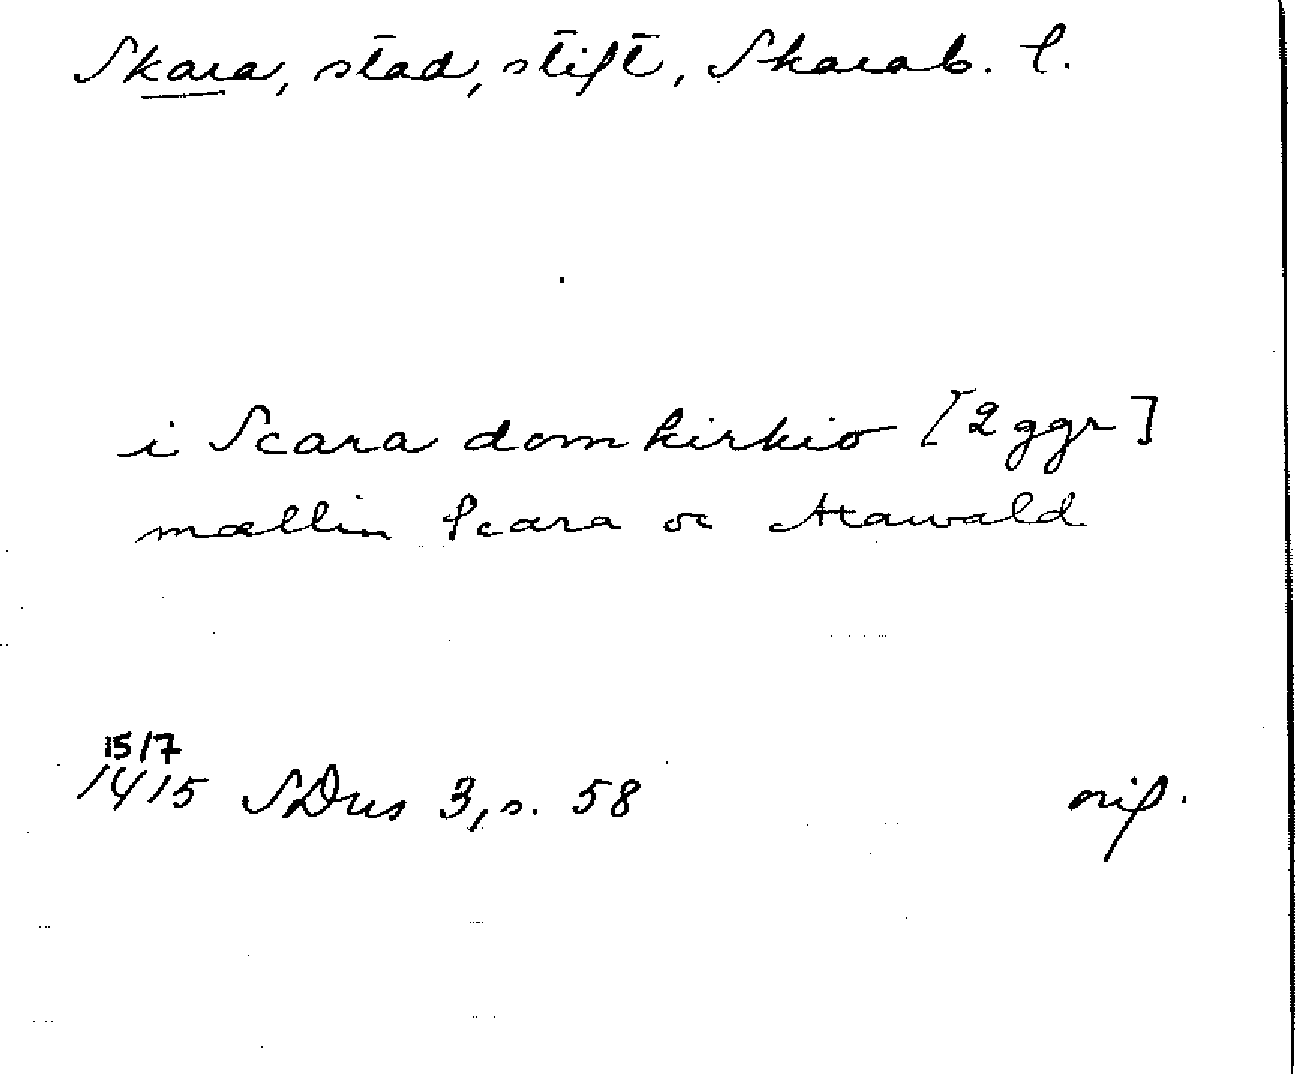 Skara, stad, stift, Skarab. l.
i Scara domkirkio [2 ggr]
mællin Scara oc Axawald
15/7
1415 SDns 3, s. 58 orig.